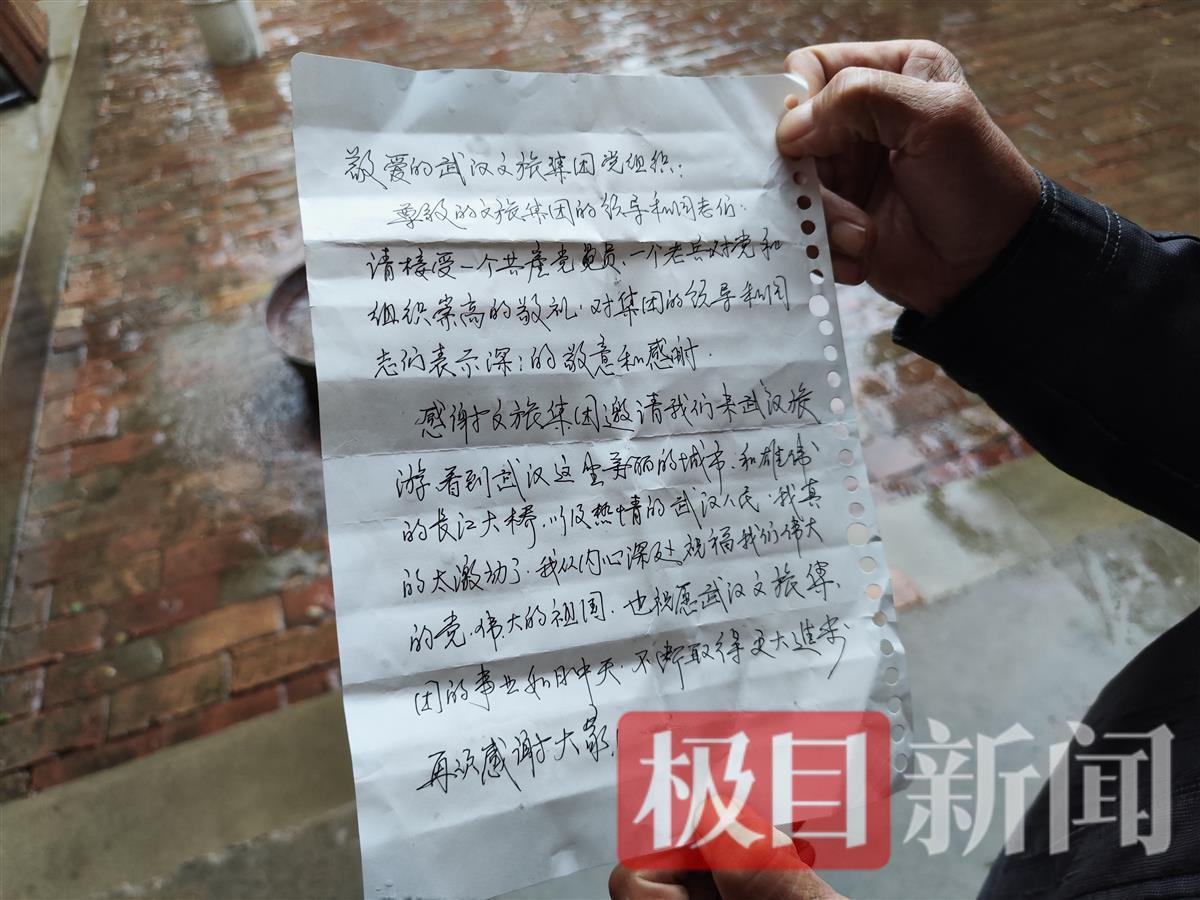 敬爱的武汉文旅集团党组织:
尊敬的文旅集团的领导和同志们:
请接受一个共产党员、一个老兵对党和
组织崇高的敬礼,对集团的领导和同
志们表示深:的敬意和感谢.
感谢文旅集团邀请我们来武汉旅
游.看到武汉这坐美丽的城市、和雄伟
的长江大桥,以及热情的武汉人民,我真
的太激动了.我从内心深处祝福我们伟大
的党、伟大的祖国,也祝愿武汉文旅集
团的事业如日中天,不断取得更大进步
再次感谢大家!
极目新闻